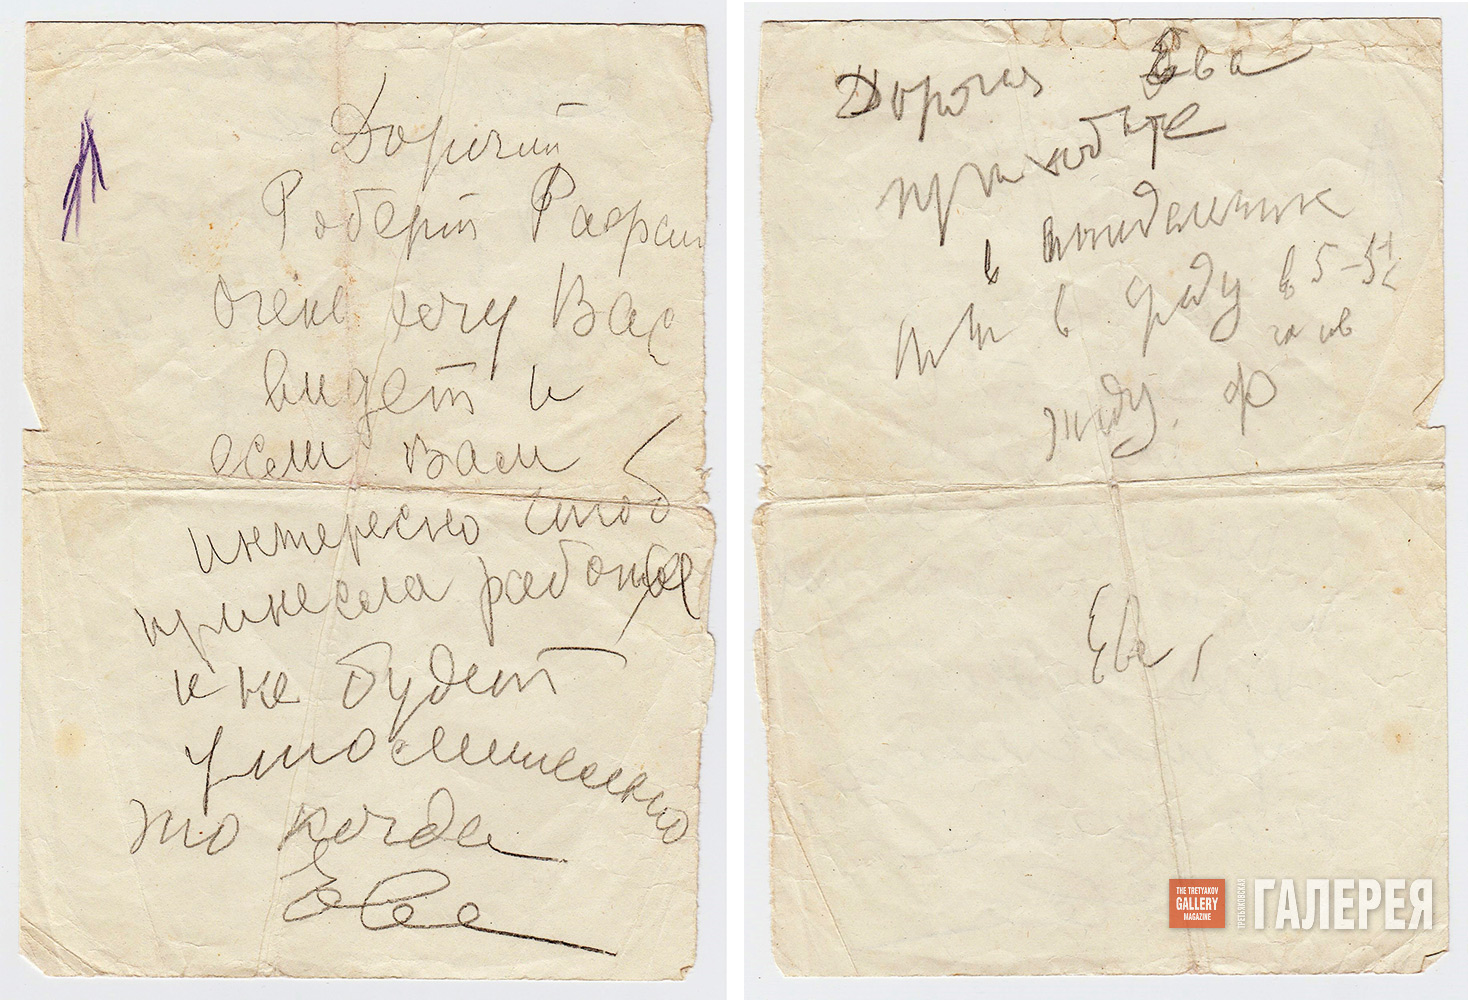 Дорогой
Роберт Рафаи
очень хочу Вас
видеть и
если Вам
интересно чтоб
принесла работы
и не будет
утомительно
то когда
Ева
Дорогая Ева
приходите
в понедельник
или в среду в 5-5½
часов
жду. Ф
Еве,
THE TRETYAKOV
GALLERY
MAGAZINE
ТРЕТЬЯКОВСКАЯ
ГАЛЕРЕЯ